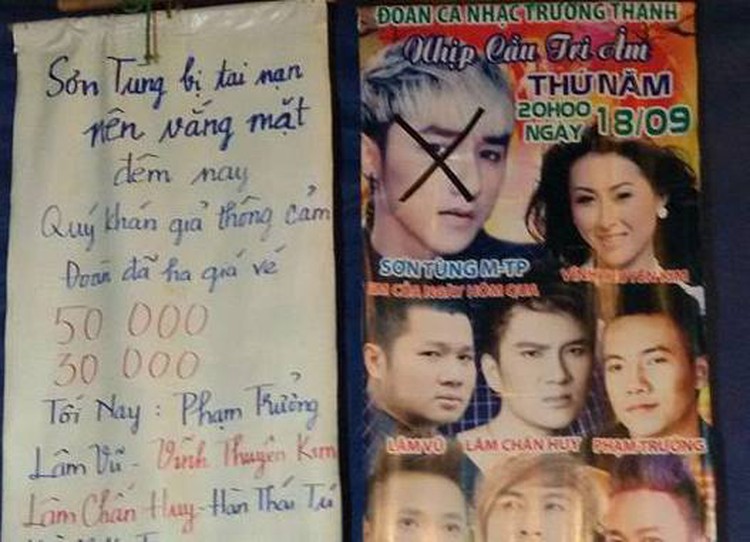 Sơn Tùng bị tai nạn
nên vắng mặt
đêm nay
Quý khán giả thông cảm
Đoàn đã hạ giá vé
50 000
30 000
Tối Nay : Phạm Trưởng
Lâm Vũ - Vĩnh Thuyên Kim
Lâm Chấn Huy - Hàn Thái Tú
ĐOÀN CA NHẠC TRƯỜNG THANH
Nhịp Cầu Tri Âm
THỨ NĂM
20H00
NGÀY 18/09
SƠN TÙNG M-TP
EM CỦA NGÀY HÔM QUA
VĨNH THUYÊN KIM
LÂM VŨ
LÂM CHẤN HUY
PHẠM TRƯỞNG